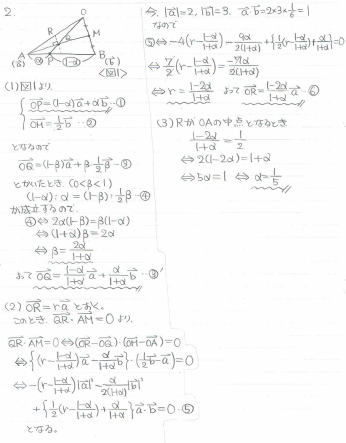 2.
O
R
M
Q
A
(a⃗)
α
P
(1-α)
B
(b⃗)
<図1>
(1) 図1より、
{ OP⃗=(1-α)a⃗+αb⃗ …①
OM⃗=½b⃗ …②
となるので
OQ⃗=(1-β)a⃗+β·½b⃗ …③
とかいたとき、(0<β<1)
(1-α):α=(1-β):½β …④
が成立するので、
④⇔2α(1-β)=β(1-α)
⇔(1+α)β=2α
⇔β=2α/(1+α)
よって OQ⃗=(1-α)/(1+α) a⃗+α/(1+α) b⃗ …③'
(2) OR⃗=ra⃗ とおく。
このとき、QR⃗·AM⃗=0 より、
QR⃗·AM⃗=0⇔(OR⃗-OQ⃗)·(OM⃗-OA⃗)=0
⇔{(r-(1-α)/(1+α))a⃗-α/(1+α) b⃗}·(½b⃗-a⃗)=0
⇔-(r-(1-α)/(1+α))|a⃗|²-α/2(1+α)|b⃗|²
+{½(r-(1-α)/(1+α))+α/(1+α)}a⃗·b⃗=0 …⑤
となる。
今、|a⃗|=2, |b⃗|=3, a⃗·b⃗=2×3×1/6=1
なので
⑤⇔-4(r-(1-α)/(1+α))-9α/2(1+α)+{½(r-(1-α)/(1+α))+α/(1+α)}=0
⇔7/2(r-(1-α)/(1+α))=-7α/2(1+α)
⇔r=(1-2α)/(1+α) よって OR⃗=(1-2α)/(1+α) a⃗ …⑥
(3) RがOAの中点となるとき
(1-2α)/(1+α)=1/2
⇔2(1-2α)=1+α
⇔5α=1 ⇔ α=1/5